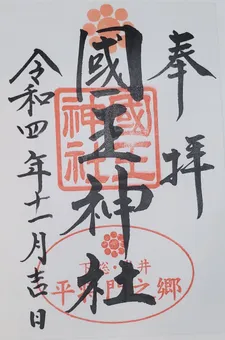 奉拝
國王神社
國王神社
下総・岩井
平将門之郷
令和四年十一月吉日